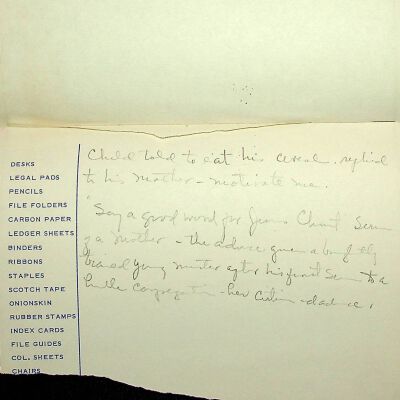 DESKS
LEGAL PADS
PENCILS
FILE FOLDERS
CARBON PAPER
LEDGER SHEETS
BINDERS
RIBBONS
STAPLES
SCOTCH TAPE
ONIONSKIN
RUBBER STAMPS
INDEX CARDS
FILE GUIDES
COL. SHEETS
CHAIRS
Child told to eat his cereal. replied
to his mother - motivate me.
"Say a good word for Jesus Christ
of a mother - the advice given a
young after his first to a
congregation - her